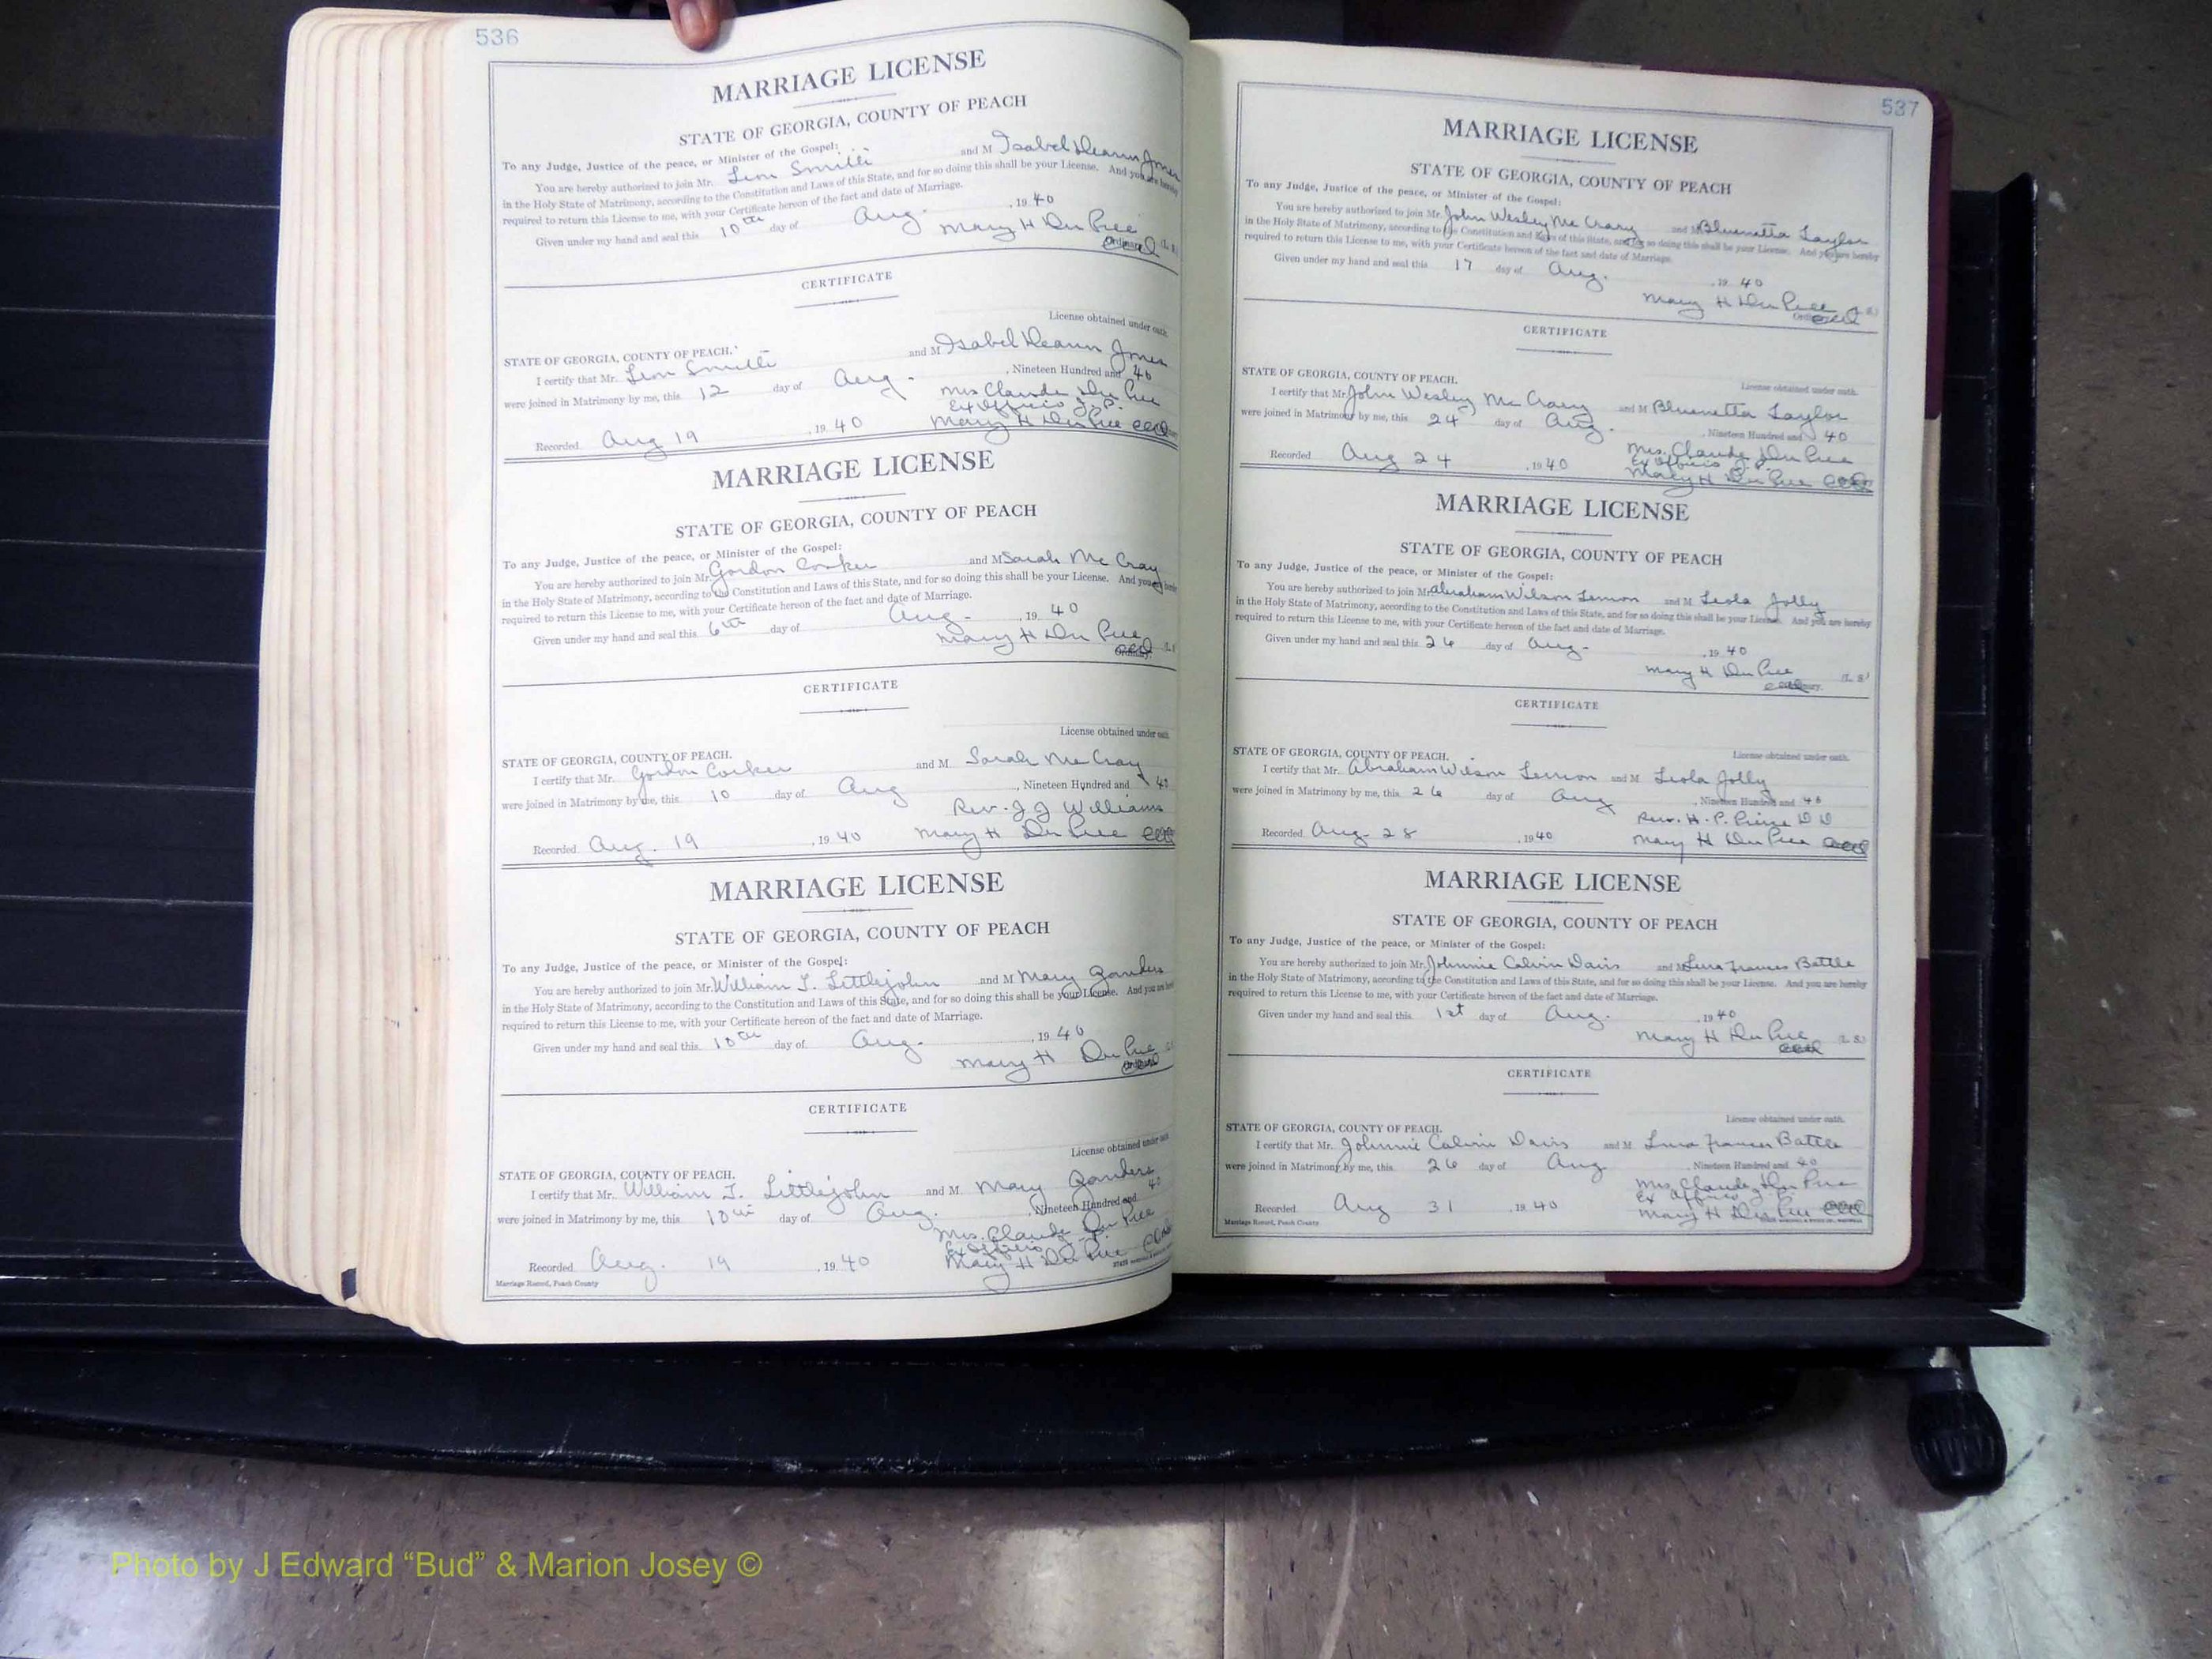 536
MARRIAGE LICENSE
STATE OF GEORGIA, COUNTY OF PEACH
To any Judge, Justice of the peace, or Minister of the Gospel:
You are hereby authorized to join Mr. Smith and M Isabel Jones
in the Holy State of Matrimony, according to the Constitution and Laws of this State, and for so doing this shall be your License. And you are hereby
required to return this License to me, with your Certificate hereon of the fact and date of Marriage.
Given under my hand and seal this 10th day of Aug. , 19 40
Mary H Du Pree
CERTIFICATE
License obtained under oath.
STATE OF GEORGIA, COUNTY OF PEACH.
I certify that Mr. Smith and M Isabel Jones
were joined in Matrimony by me, this 12 day of Aug. , Nineteen Hundred and 40
Mrs Claude Du Pree
Ex Officio J.P.
Recorded Aug 19 , 19 40 Mary H Du Pree
MARRIAGE LICENSE
STATE OF GEORGIA, COUNTY OF PEACH
To any Judge, Justice of the peace, or Minister of the Gospel:
You are hereby authorized to join Mr. Gordon and M Sarah Mc Cray
in the Holy State of Matrimony, according to the Constitution and Laws of this State, and for so doing this shall be your License. And you
required to return this License to me, with your Certificate hereon of the fact and date of Marriage.
Given under my hand and seal this 6th day of Aug. , 19 40
Mary H Du Pree
Ordinary.
CERTIFICATE
License obtained under oath.
STATE OF GEORGIA, COUNTY OF PEACH.
I certify that Mr. Gordon and M Sarah Mc Cray
were joined in Matrimony by me, this 10 day of Aug , Nineteen Hundred and 40
Rev. J J Williams
Recorded Aug. 19 , 19 40 Mary H Du Pree
MARRIAGE LICENSE
STATE OF GEORGIA, COUNTY OF PEACH
To any Judge, Justice of the peace, or Minister of the Gospel:
You are hereby authorized to join Mr. William J. Littlejohn and M Mary
in the Holy State of Matrimony, according to the Constitution and Laws of this State, and for so doing this shall be your License. And you are
required to return this License to me, with your Certificate hereon of the fact and date of Marriage.
Given under my hand and seal this 10th day of Aug. , 19 40
Mary H Du Pree
CERTIFICATE
License obtained under oath
STATE OF GEORGIA, COUNTY OF PEACH.
I certify that Mr. William J. Littlejohn and M Mary
were joined in Matrimony by me, this 10th day of Aug. , Nineteen Hundred and 40
Mrs. Claude Du Pree
Ex Officio
Recorded Aug. 19 , 19 40 Mary H Du Pree
Marriage Record, Peach County
537
MARRIAGE LICENSE
STATE OF GEORGIA, COUNTY OF PEACH
To any Judge, Justice of the peace, or Minister of the Gospel:
You are hereby authorized to join Mr. John Wesley Mc Crary and M Bluenetta Taylor
in the Holy State of Matrimony, according to the Constitution and Laws of this State, and for so doing this shall be your License. And you are hereby
required to return this License to me, with your Certificate hereon of the fact and date of Marriage.
Given under my hand and seal this 17 day of Aug. , 19 40
Mary H Du Pree
CERTIFICATE
License obtained under oath.
STATE OF GEORGIA, COUNTY OF PEACH.
I certify that Mr. John Wesley Mc Crary and M Bluenetta Taylor
were joined in Matrimony by me, this 24 day of Aug. , Nineteen Hundred and 40
Mrs. Claude Du Pree
Ex Officio J.P.
Recorded Aug 24 , 19 40 Mary H Du Pree
MARRIAGE LICENSE
STATE OF GEORGIA, COUNTY OF PEACH
To any Judge, Justice of the peace, or Minister of the Gospel:
You are hereby authorized to join Mr. Abraham Wilson Lemon and M Leola Jolly
in the Holy State of Matrimony, according to the Constitution and Laws of this State, and for so doing this shall be your License. And you are hereby
required to return this License to me, with your Certificate hereon of the fact and date of Marriage.
Given under my hand and seal this 26 day of Aug. , 19 40
Mary H Du Pree (L. S.)
CERTIFICATE
License obtained under oath.
STATE OF GEORGIA, COUNTY OF PEACH.
I certify that Mr. Abraham Wilson Lemon and M Leola Jolly
were joined in Matrimony by me, this 26 day of Aug , Nineteen Hundred and 40
Rev. H. P. Pierce D D
Recorded Aug. 28 , 19 40 Mary H Du Pree
MARRIAGE LICENSE
STATE OF GEORGIA, COUNTY OF PEACH
To any Judge, Justice of the peace, or Minister of the Gospel:
You are hereby authorized to join Mr. Johnnie Calvin Davis and M Frances Battle
in the Holy State of Matrimony, according to the Constitution and Laws of this State, and for so doing this shall be your License. And you are hereby
required to return this License to me, with your Certificate hereon of the fact and date of Marriage.
Given under my hand and seal this 1st day of Aug. , 19 40
Mary H Du Pree (L. S.)
CERTIFICATE
License obtained under oath.
STATE OF GEORGIA, COUNTY OF PEACH.
I certify that Mr. Johnnie Calvin Davis and M Frances Battle
were joined in Matrimony by me, this 26 day of Aug. , Nineteen Hundred and 40
Mrs. Claude Du Pree
Ex Officio J.P.
Recorded Aug 31 , 19 40 Mary H Du Pree
Marriage Record, Peach County
Photo by J Edward “Bud” & Marion Josey ©